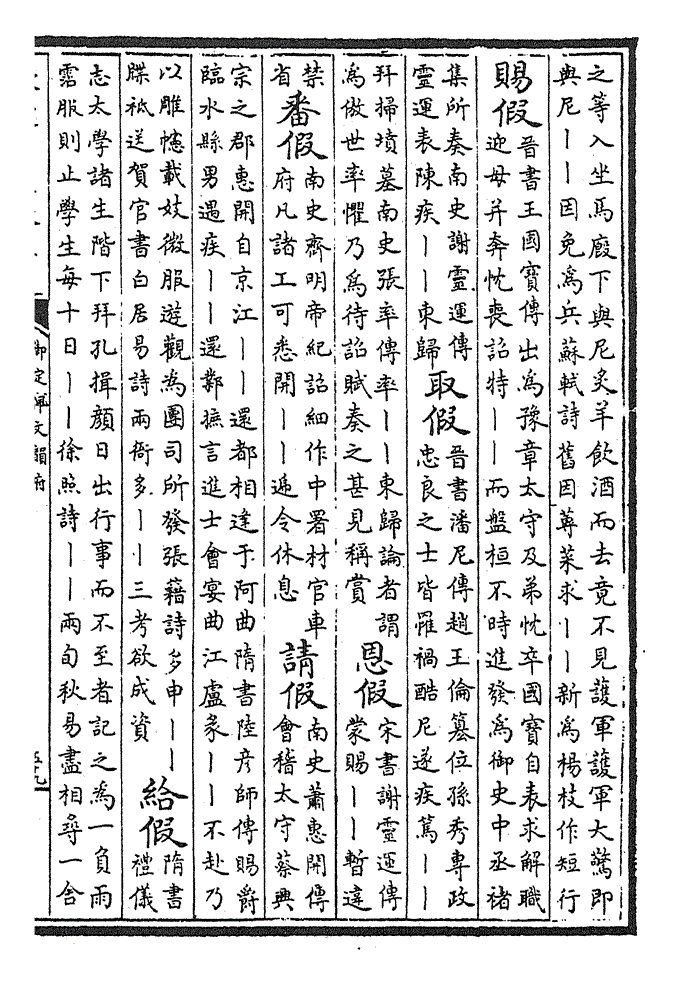 之等入坐馬廄下與尼炙羊飲酒而去竟不見護軍護軍大驚即
與尼丨丨因免爲兵蘇軾詩舊因蓴菜求丨丨新爲楊枝作短行
賜假
晉書王國寶傳出爲豫章太守及弟忱卒國寶自表求解職
迎母并奔忱喪詔特丨丨而盤桓不時進發爲御史中丞褚
集所奏南史謝靈運傳
靈運表陳疾丨丨東歸
取假
晉書潘尼傳趙王倫篡位孫秀專政
忠良之士皆罹禍酷尼遂疾篤丨丨
拜掃墳墓南史張率傳率丨丨東歸論者謂
爲傲世率懼乃爲待詔賦奏之甚見稱賞
恩假
宋書謝靈運傳
蒙賜丨丨暫違
禁
省
番假
南史齊明帝紀詔細作中署材官車
府凡諸工可悉開丨丨遞令休息
請假
南史蕭惠開傳
會稽太守蔡興
宗之郡惠開自京江丨丨還都相逢于阿曲隋書陸彦師傳賜爵
臨水縣男遇疾丨丨還鄴摭言進士會宴曲江盧彖丨丨不赴乃
以雕幰載妓微服遊觀為團司所發張籍詩多申丨丨
牒祗送賀官書白居易詩兩衙多丨丨三考欲成資
給假
隋書
禮儀
志太學諸生階下拜孔揖顔日出行事而不至者記之為一負雨
霑服則止學生每十日丨丨徐照詩丨丨兩旬秋易盡相尋一舍
御定佩文韻府
五十九